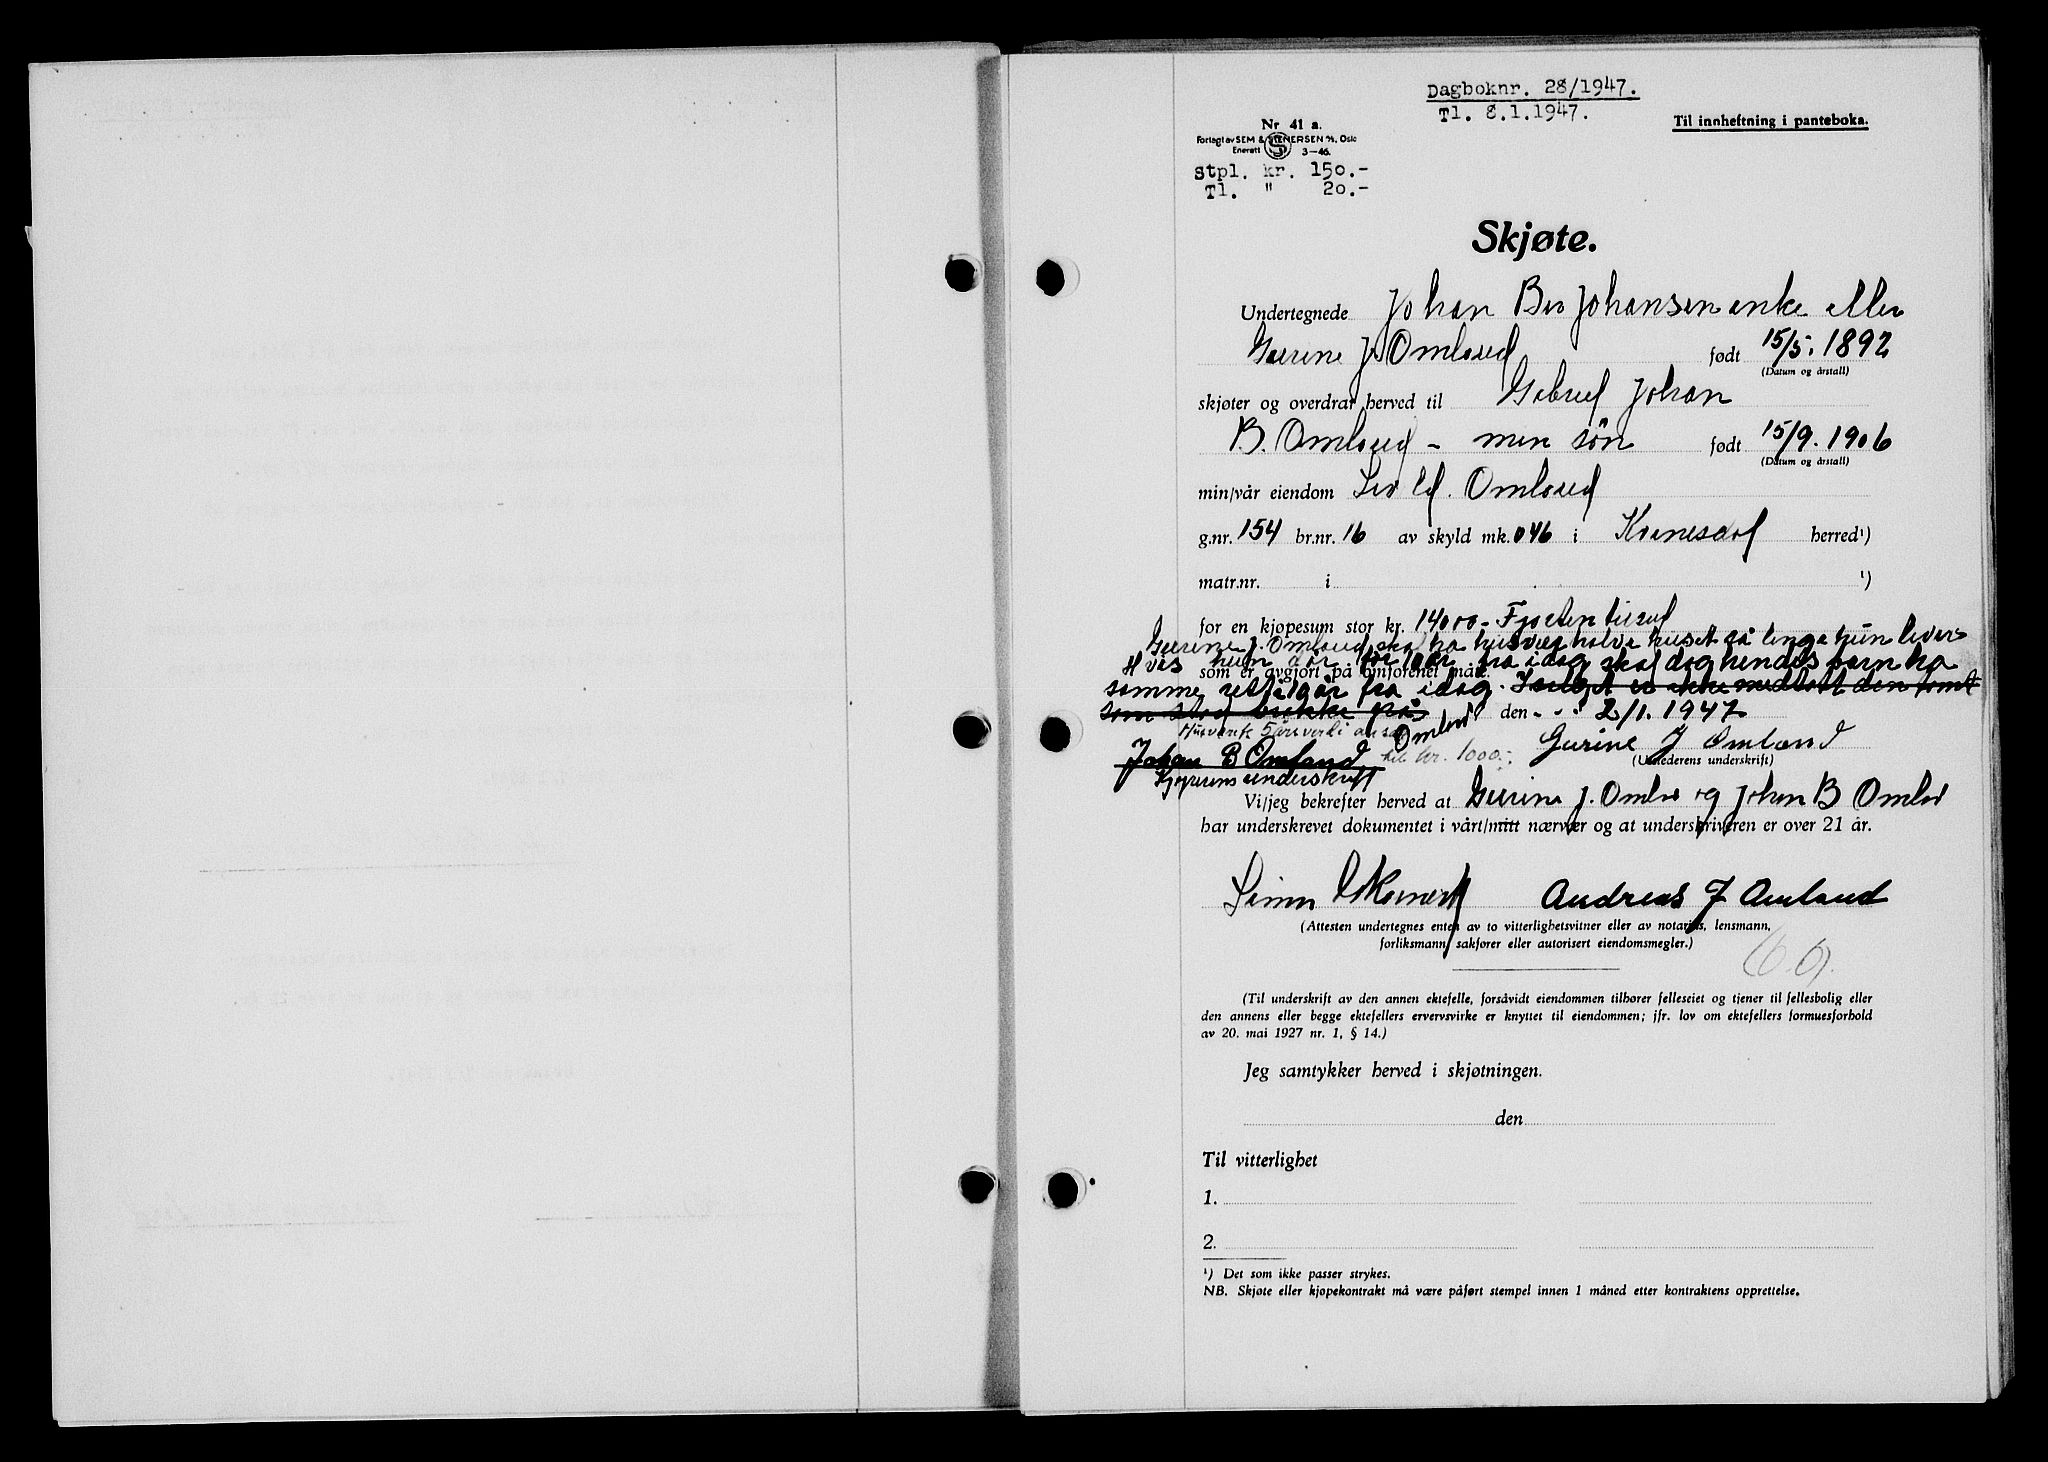 Dagboknr. 28/1947.
Tl. 8.1.1947.
Til innheftning i panteboka.
Nr 41 a.
Forlagt av SEM & STENERSEN A/S, Oslo
Enerett S 3-46.
stpl. kr. 150.-
Tl. " 20.-
Skjøte.
Undertegnede Johan Johansen enke eller
Gurine J. Omland født 15/5. 1892
(Datum og årstall)
skjøter og overdrar herved til Gabriel Johan
B. Omland - min søn født 15/9. 1906
(Datum og årstall)
min/vår eiendom Omland
g.nr. 154 br.nr. 16 av skyld mk. 046 i Kvinesdal herred¹)
matr.nr. i ¹)
for en kjøpesum stor kr. 14000 - Fjorten tusud
Gurine J. Omland skal ha husvær halve huset så lenge hun lever
Hvis hun dør før 10 år fra idag skal dog hendes barn ha
som er avgjort på omforenet måte.
samme rett i 10 år fra idag. er ikke medtatt den tomt
som stod på den 2/1. 1947
Husværets 5 årsverdi ansat
Johan B Omland til kr. 1000.- Gurine J Omland
(Utstederens underskrift)
Kjøperens underskrift
Vi/jeg bekrefter herved at Gurine J. Omland og Johan B Omland
har underskrevet dokumentet i vårt/mitt nærvær og at underskriveren er over 21 år.
Andreas J Omland
(Attesten undertegnes enten av to vitterlighetsvitner eller av notarius, lensmann,
forliksmann, sakfører eller autorisert eiendomsmegler.)
(Til underskrift av den annen ektefelle, forsåvidt eiendommen tilhører felleseiet og tjener til fellesbolig eller
den annens eller begge ektefellers ervervsvirke er knyttet til eiendommen; jfr. lov om ektefellers formuesforhold
av 20. mai 1927 nr. 1, § 14.)
Jeg samtykker herved i skjøtningen.
den
Til vitterlighet
1.
2.
¹) Det som ikke passer strykes.
NB. Skjøte eller kjøpekontrakt må være påført stempel innen 1 måned etter kontraktens opprettelse.